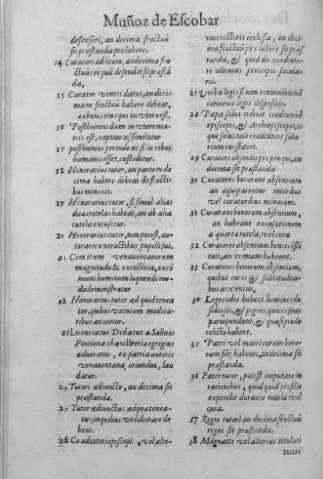 Muñoz de Escobar
defensori, an decima fructuũ
sit præstanda pro labore.
14 Curator ad litem, an decima fru
ctuũ rei quã defendit sit præstã
da,
15 Curator ventri datus, an deci-
mam fructuũ habere debeat,
ex bonis eius qui in vtero est.
16 Posthumo dum in vtero ma-
tris est, captiuo assimilatur
17 posthumus perinde ac si in rebus
humanis esset, custoditur.
18 Honorarius tutor, an partem de
cima habere debeat de fructi-
bus minoris.
19 Honorarius tutor, si simul alias
duas tutelas habeat, an ab alia
tutela excusetur.
20 Honorarius tutor, num potest, au-
torare contractibus pupilli sui,
21 Comitum venauentanorum
magnitudo & excellẽcia, ex cõ
muni hominum loquendi mo-
do demonstratur
22 Honorarius tutor ad quid tenea
tur, quibus vaincom medita-
tibus anxietur.
23 Licenciatus Didacus a Salinis
Pinciana chavelleria egregius
aduocatus, ex patria autoris
venauentana, oriundus, lau
datur.
24 Tutori adiuncto, an decima sit
præstanda.
25 Tutor adiunctus ad quæ tenea-
tur, in quibus vel aborare de
beat.
26 Coadiutori episcopi, vel alte-
rius rectoris ecclesiæ, an deci-
ma fructuũ pro labore sit præs
tanda, & quid de coadiuto-
re alicuius principis sæcula-
ris.
27 Verba legis si non conueniunt nõ
conuenit legis dispositio.
22 Papa solus tribuit coadiutores
episcopis, & Archiepiscopis, is
que solus tali coadiutori sala
rium constituit.
29 Curatores absentis propinqui, an
decima sit præstanda
30 Curatores bonorum absentium
an æquiparentur tutoribus
vel curatoribus minorum.
31 Curatores bonorum absentium,
an habeant excusationem
a quarta tutela, vel cura
32 Curatores absentium bonis cõsti
tuti, an decimam habeant.
33 Curatores bonorum absentium,
quibus curis & solicitudini-
bus anxientur.
34 Leges odio habent homines de
sidiosos, & pigros, quores suas
parui pendunt, & quasi prode
relictis habent.
35 Patri vel matri curam bono-
rum filij habenti, an decima sit
præstanda.
36 Pater tutor, potest imputare in
rationibus, quid quid pro filio
expendit durante tutela vel
cura.
37 Regio tutori an decima fructuũ
regni sit præstanda.
38 Magnatis vel alterius titulati
tutori